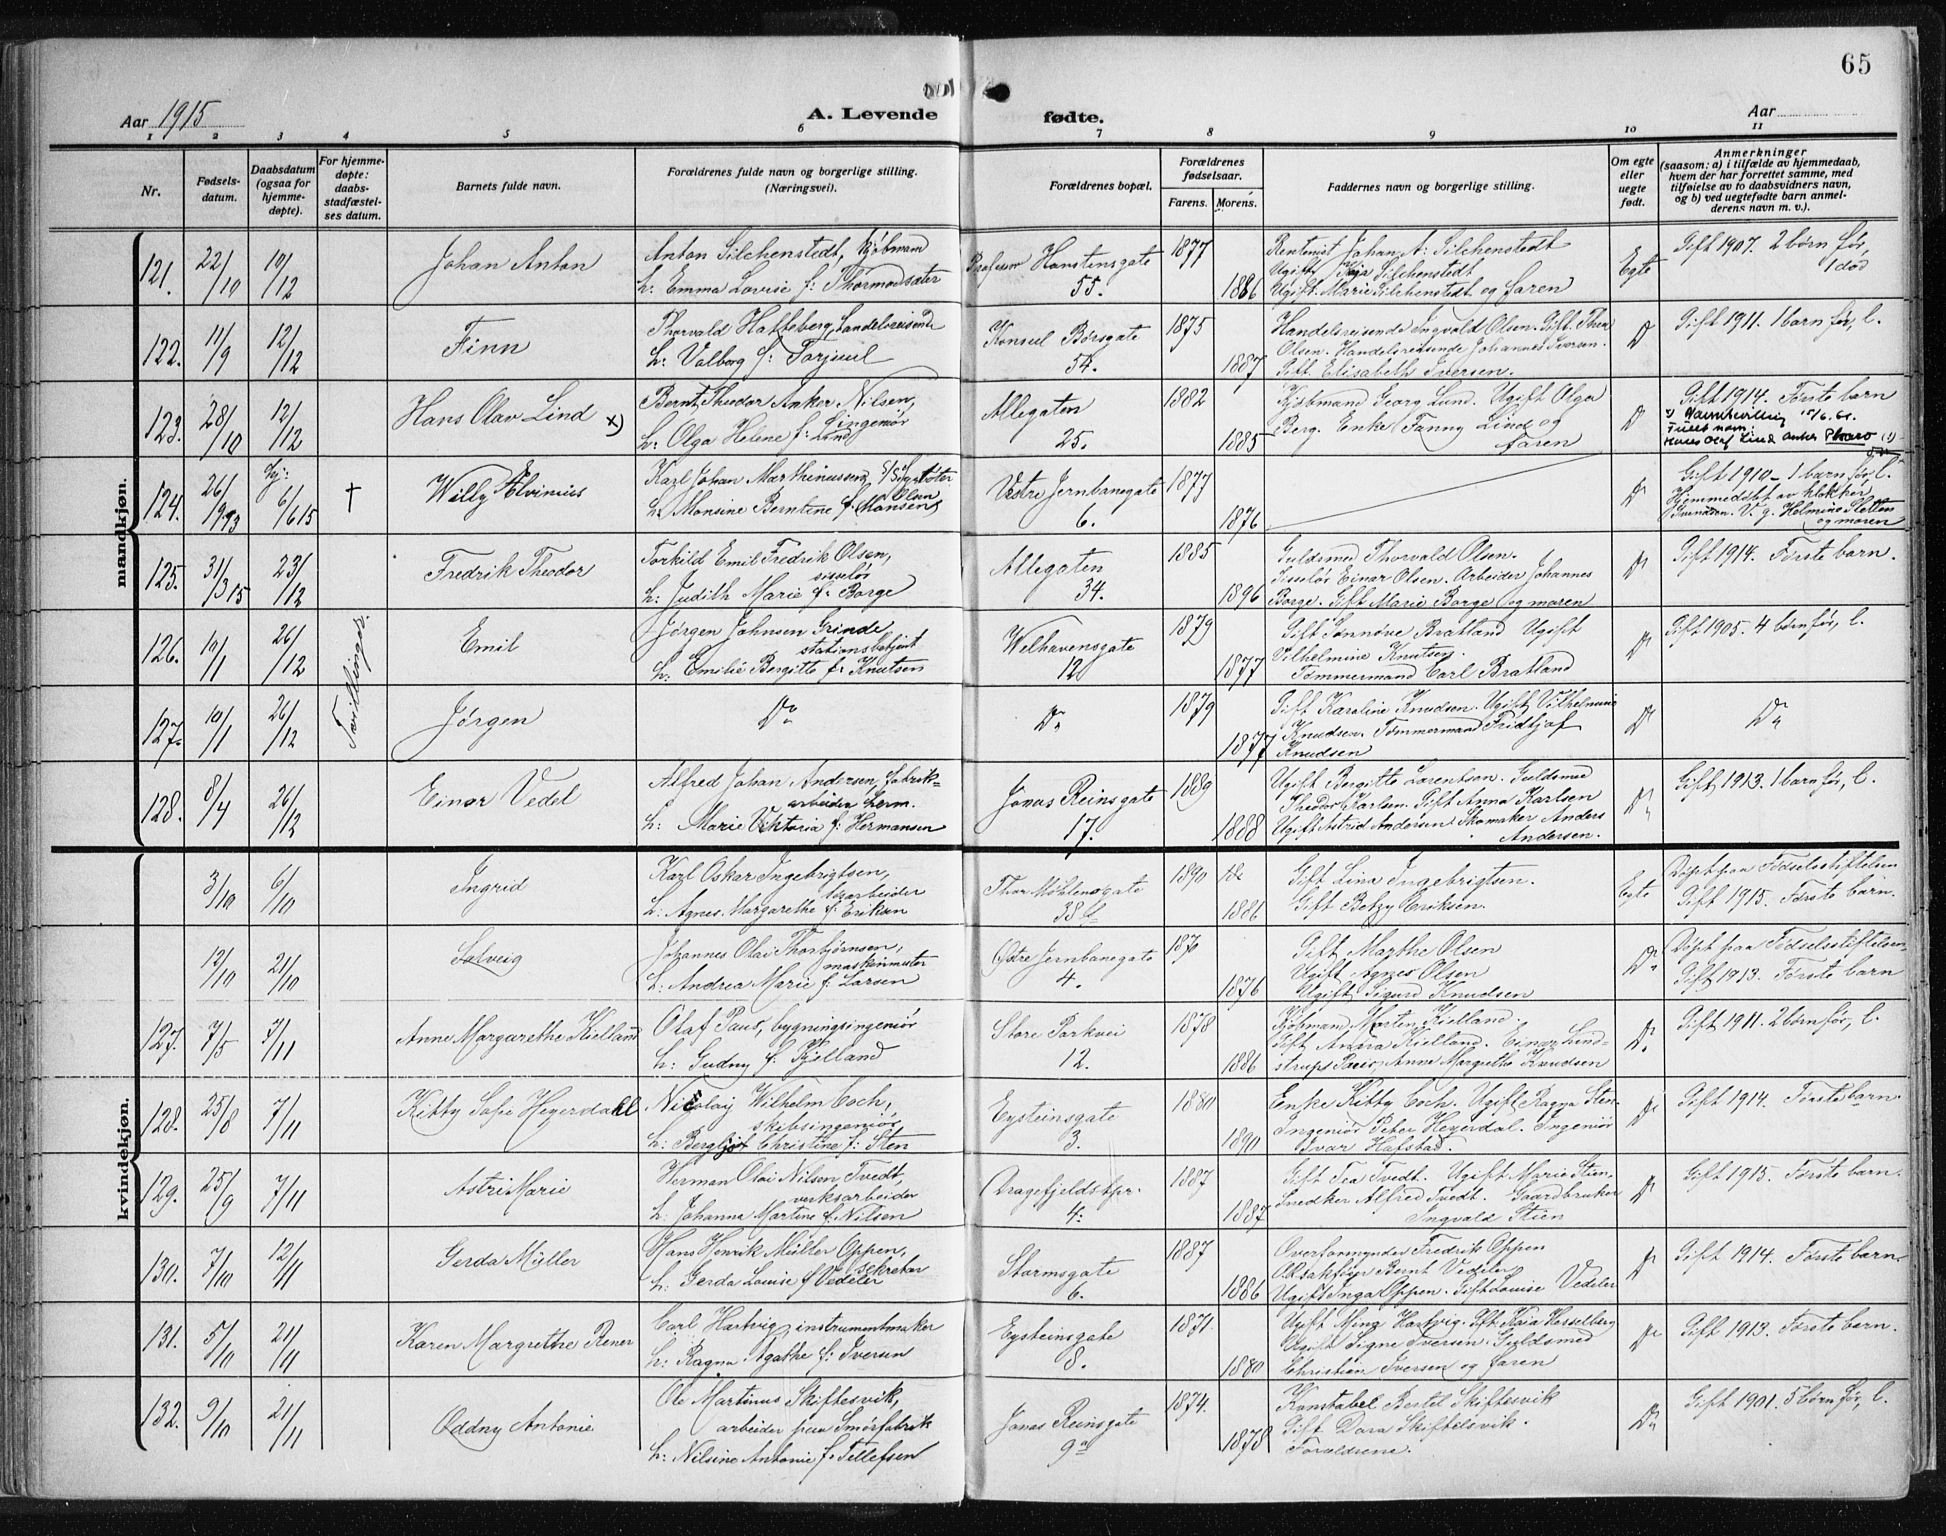 65
Aar 1915
A. Levende
fødte.
Aar
1 2 3 4 5 6 7 8 9 10 11
Nr.
Fødsels-
datum.
Daabsdatum
(ogsaa for
hjemme-
døpte).
For hjemme-
døpte:
daabs-
stadfæstel-
ses datum.
Barnets fulde navn.
Forældrenes fulde navn og borgerlige stilling.
(Næringsvei).
Forældrenes bopæl.
Forældrenes
fødselsaar.
Farens. Morens.
Faddernes navn og borgerlige stilling.
Om egte
eller
uegte
født.
Anmerkninger
(saasom: a) i tilfælde av hjemmedaab,
hvem der har forrettet samme, med
tilføielse av to daabsvidners navn,
og b) ved uegtefødte barn anmel-
derens navn m. v.).
mandkjøn.
121. 22/10 10/12 Johan Anton
Anton Silchenstedt, kjøbmand
h: Emma Lovise f: Thormodsæter
Professor Hanstensgate
55.
1877 1886
Rentenist Johan A: Silchenstedt
Ugift Silchenstedt
Ugift Marie Silchenstedt og faren
Egte
Gift 1907. 2 børn før,
1 død
122. 11/9 12/12 Finn
Thorvald Hatteberg, handelsreisende
h: Valborg f: Torjuul
Konsul Børsgate
54.
1875 1887
Handelsreisende Ingvald Olsen. Gift Thea
Olsen. Handelsreisende Johannes Iversen.
Gift Elisabeth Iversen.
Do
Gift 1911. 1 barn før, l.
123. 28/10 12/12 Hans Olav Lind x)
Bernt Theodor Anker Nilsen,
ingeniør
h: Olga Helene f: Lind
Allegaten
25.
1882 1885
Kjøbmand Georg Lund. Ugift Olga
Berg. Enke Fanny Lind og
faren
Do
Gift 1914. Første barn
x) Navnbevilling 15/6.61.
Fullt navn:
Hans Olaf Lind Anker
124. 26/9 93 hj: 6/6 15 † Willy Alvinius
Karl Johan Marthinussen,
h: Monsine Berntine f. Monsen
Vestre Jernbanegate
6.
1877 1876
Do
Gift 1910 - 1 barn før, l.
Hjemmedøbt av klokker
Svendsen. V. g. Helmine Sletten
og moren
125. 31/3 15 23/12 Fredrik Theodor
Torkild Emil Fredrik Olsen,
sisselør
h: Judith Marie f: Borge
Allegaten
34.
1885 1896
Guldsmed Thorvald Olsen.
Sisselør Einar Olsen. Arbeider Johannes
Borge. Gift Marie Borge og moren
Do
Gift 1914. Første barn.
Tvillinger.
126. 10/1 26/12 Emil
Jørgen Johnsen Grinde
stationsbetjent
h: Emilie Bergitte f: Knutsen
Welhavensgate
12
1879 1877
Gift Sønnøve Bratland Ugift
Vilhelmine Knutsen.
Tømmermand Carl Bratland
Do
Gift 1905. 4 børn før, l.
127. 10/1 26/12 Jørgen
Do
Do
1879 1877
Gift Karoline Knudsen. Ugift Vilhelmine
Knudsen. Tømmermand Fridtjof
Knudsen
Do
Do
128. 8/4 26/12 Einar Vedel
Alfred Johan Andersen, fabrik-
arbeider
h: Marie Viktoria f: Hermansen
Jonas Reinsgate
17.
1889 1888
Ugift Bergitte Lorentson. Guldsmed
Theodor Karlsen. Gift Anna Karlsen
Ugift Astrid Andersen Skomaker Anders
Andersen.
Do
Gift 1913. 1 barn før, l.
kvindekjøn.
3/10 6/10 Ingrid
Karl Oskar Ingebrigtsen,
h: Agnes Margarethe f: Eriksen
Thor Møhlensgate
38 b
1890 1886
Gift Lina Ingebrigtsen.
Gift Betzy Eriksen.
Egte
Døpt paa Fødselsstiftelsen
Gift 1915. Første barn.
13/10 21/10 Solveig
Johannes Olai Thorbjørnsen,
maskinmester
h: Andrea Marie f: Larsen
Østre Jernbanegate
4.
1876 1876
Gift Marthe Olsen
Ugift Agnes Olsen
Ugift Sigurd Knudsen
Do
Døpt paa Fødselsstiftelsen
Gift 1913. Første barn
127. 7/5 7/11 Anne Margarethe Kielland
Olaf Paus, bygningsingeniør
h: Gudny f: Kjelland
Store Parkvei
12.
1878 1886
Kjøbmand Morten Kielland.
Gift Anna Kielland. Einar Lund-
strups Paus. Anne Margrethe Knudsen
Do
Gift 1911. 2 børn før, l.
128. 25/8 7/11 Kitty Sofie Heyerdahl
Nicolay Wilhelm Coch,
skibsingeniør
h: Bergljot Christine f: Sten
Eysteinsgate
3.
1880 1890
Enke Kitty Coch. Ugift Ragna Sten.
Ingeniør Peter Heyerdal. Ingeniør
Ivar Hafstad.
Do
Gift 1914. Første barn.
129. 25/9 7/11 Astri Marie
Herman Olai Nilsen Tvedt,
verksarbeider
h: Johanna Martine f: Nilsen
Dragefjeldstpr.
4.
1887 1887
Gift Tea Tvedt. Ugift Marie Stien.
Snedker Alfred Tvedt. Gaardbruker
Ingvald Stien
Do
Gift 1915. Første barn.
130. 7/10 12/11 Gerda Müller
Hans Henrik Müller Oppen,
sekretær
h: Gerda Louise f Vedeler
Stormsgate
6.
1887 1886
Overformynder Fredrik Oppen
Bernt Vedeler
Ugift Inga Oppen. Gift Louise Vedeler
Do
Gift 1914. Første barn.
131. 5/10 21/11 Karen Margrethe Rener
Carl Hartvig, instrumentmaker
h: Ragna Agathe f: Iversen
Eysteinsgate
8.
1871. 1880
Ugift Minz Hartvig. Gift Kaia Hesselberg
Ugift Signe Iversen. Guldsmed
Christian Iversen og faren
Do
Gift 1913. Første barn.
132. 9/10 21/11 Oddny Antonie
Ole Martinus Skiftesvik,
arbeider paa Smørfabrik
h: Nilsine Antonie f. Tellefsen
Jonas Reinsgate
9a
1874. 1878
Konstabel Bertel Skiftesvik
Gift Dora Skiftesvik.
Forældrene.
Do
Gift 1901. 5 børn før, l.